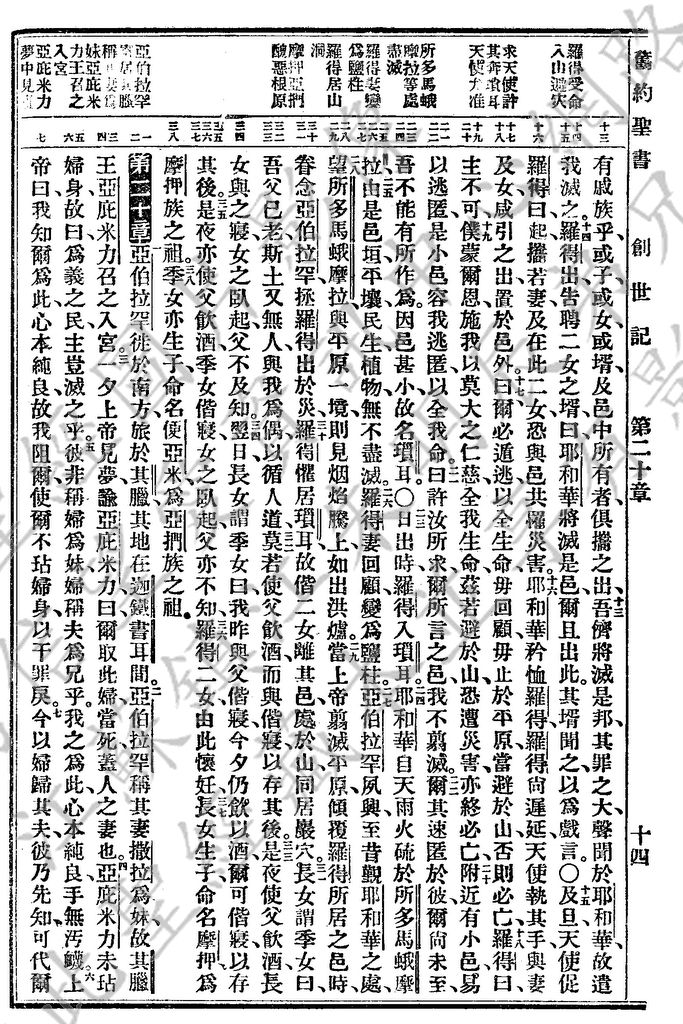 舊約聖書 創世記 第二十章 十四
羅得受命
入山避災
求天使許
其奔瑣耳
天使允准
所多馬蛾
摩拉等處
盡滅
羅得妻變
為鹽柱
羅得居山
洞
摩押亞捫
醜惡根原
亞伯拉罕
稱其妻為
妹亞庇米
力王召之
入宮
亞庇米力
夢中見
有戚族乎或子或女或壻及邑中所有者俱攜之出吾儕將滅是邦其罪之大聲聞於耶和華故遣
我滅之羅得出告聘二女之壻曰耶和華將滅是邑爾且出此其壻聞之以為戲言〇及旦天使促
羅得曰起攜若妻及在此二女恐與邑共罹災害耶和華矜恤羅得羅得尚遲延天使執其手與妻
及女咸引之出置於邑外曰爾必遁逃以全生命毋回顧毋止於平原當避於山否則必亡羅得曰
主不可僕蒙爾恩施我以莫大之仁慈全我生命茲若避於山恐遭災害亦終必亡附近有小邑易
以逃匿是小邑容我逃匿以全我命曰許汝所求爾所言之邑我不翦滅爾其速匿於彼爾尚未至
吾不能有所作為因邑甚小故名瑣耳〇日出時羅得入瑣耳耶和華自天雨火硫於所多馬蛾摩
拉由是邑垣平壤民生植物無不盡滅羅得妻回顧變為鹽柱亞伯拉罕夙興至昔覲耶和華之處
望所多馬蛾摩拉與平原一境則見烟焰騰上如出洪爐當上帝翦滅平原傾覆羅得所居之邑時
眷念亞伯拉罕拯羅得出於災羅得懼居瑣耳故偕二女離其邑處於山同居巖穴長女謂季女曰
吾父已老斯土又無人與我為偶以循人道莫若使父飲酒而與偕寢以存其後是夜使父飲酒長
女與之寢女之臥起父不及知翌日長女謂季女曰我昨與父偕寢今夕仍飲以酒爾可偕寢以存
其後是夜亦使父飲酒季女偕寢女之臥起父亦不知羅得二女由此懷妊長女生子命名摩押為
摩押族之祖季女亦生子命名便亞米為亞捫族之祖
第二十章亞伯拉罕徙於南方旅於其臘其地在迦鐵書耳間亞伯拉罕稱其妻撒拉為妹故其臘
王亞庇米力召之入宮一夕上帝見夢諭亞庇米力曰爾取此婦當死蓋人之妻也亞庇米力未玷
婦身故曰為義之民主豈滅之乎彼非稱婦為妹婦稱夫為兄乎我之為此心本純良手無汚衊上
帝曰我知爾為此心本純良故我阻爾使爾不玷婦身以干罪戾今以婦歸其夫彼乃先知可代爾